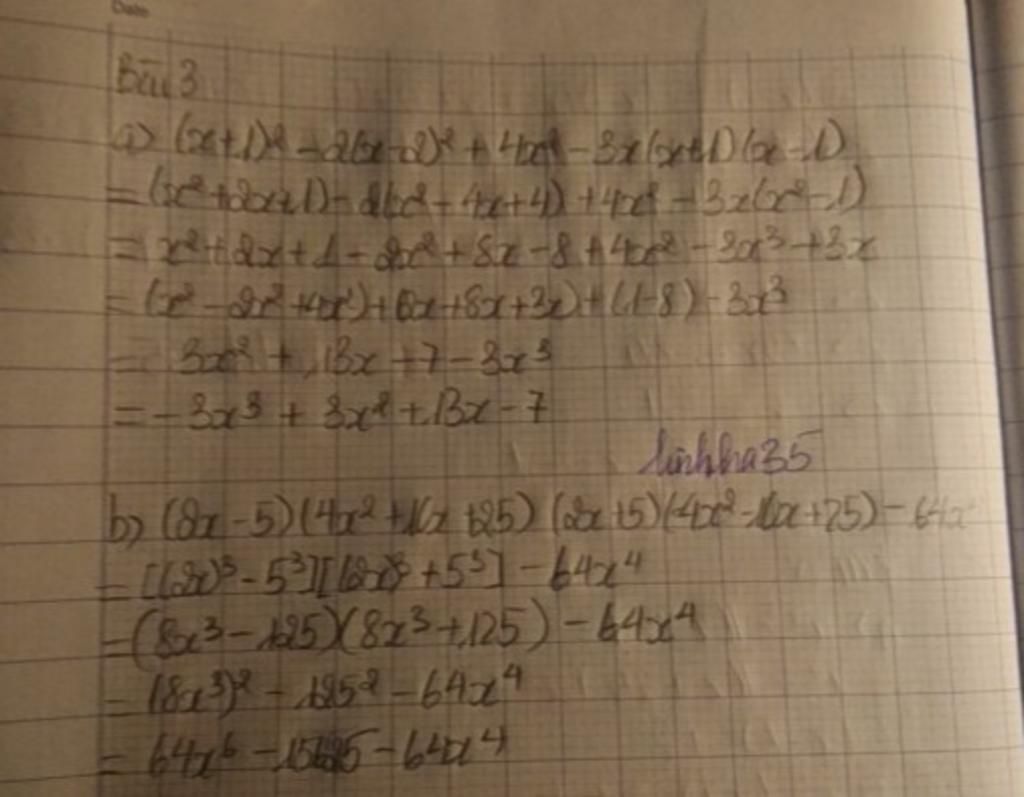 Date
Bài 3
a) (x+1)² - 2(x-2)² + 4x² - 3x(x+1)(x-1)
= (x²+2x+1) - 2(x² - 4x+4) + 4x² - 3x(x²-1)
= x² + 2x + 1 - 2x² + 8x - 8 + 4x² - 3x³ + 3x
= (x² - 2x² + 4x²) + (2x + 8x + 3x) + (1-8) - 3x³
= 3x² + 13x + 7 - 3x³
= - 3x³ + 3x² + 13x - 7
linhha35
b) (2x - 5)(4x² + 10x + 25) (2x + 5)(4x² - 10x + 25) - 64x
= [(2x)³ - 5³][(2x)³ + 5³] - 64x⁴
= (8x³ - 125)(8x³ + 125) - 64x⁴
= (8x³)² - 125² - 64x⁴
= 64x⁶ - 15625 - 64x⁴